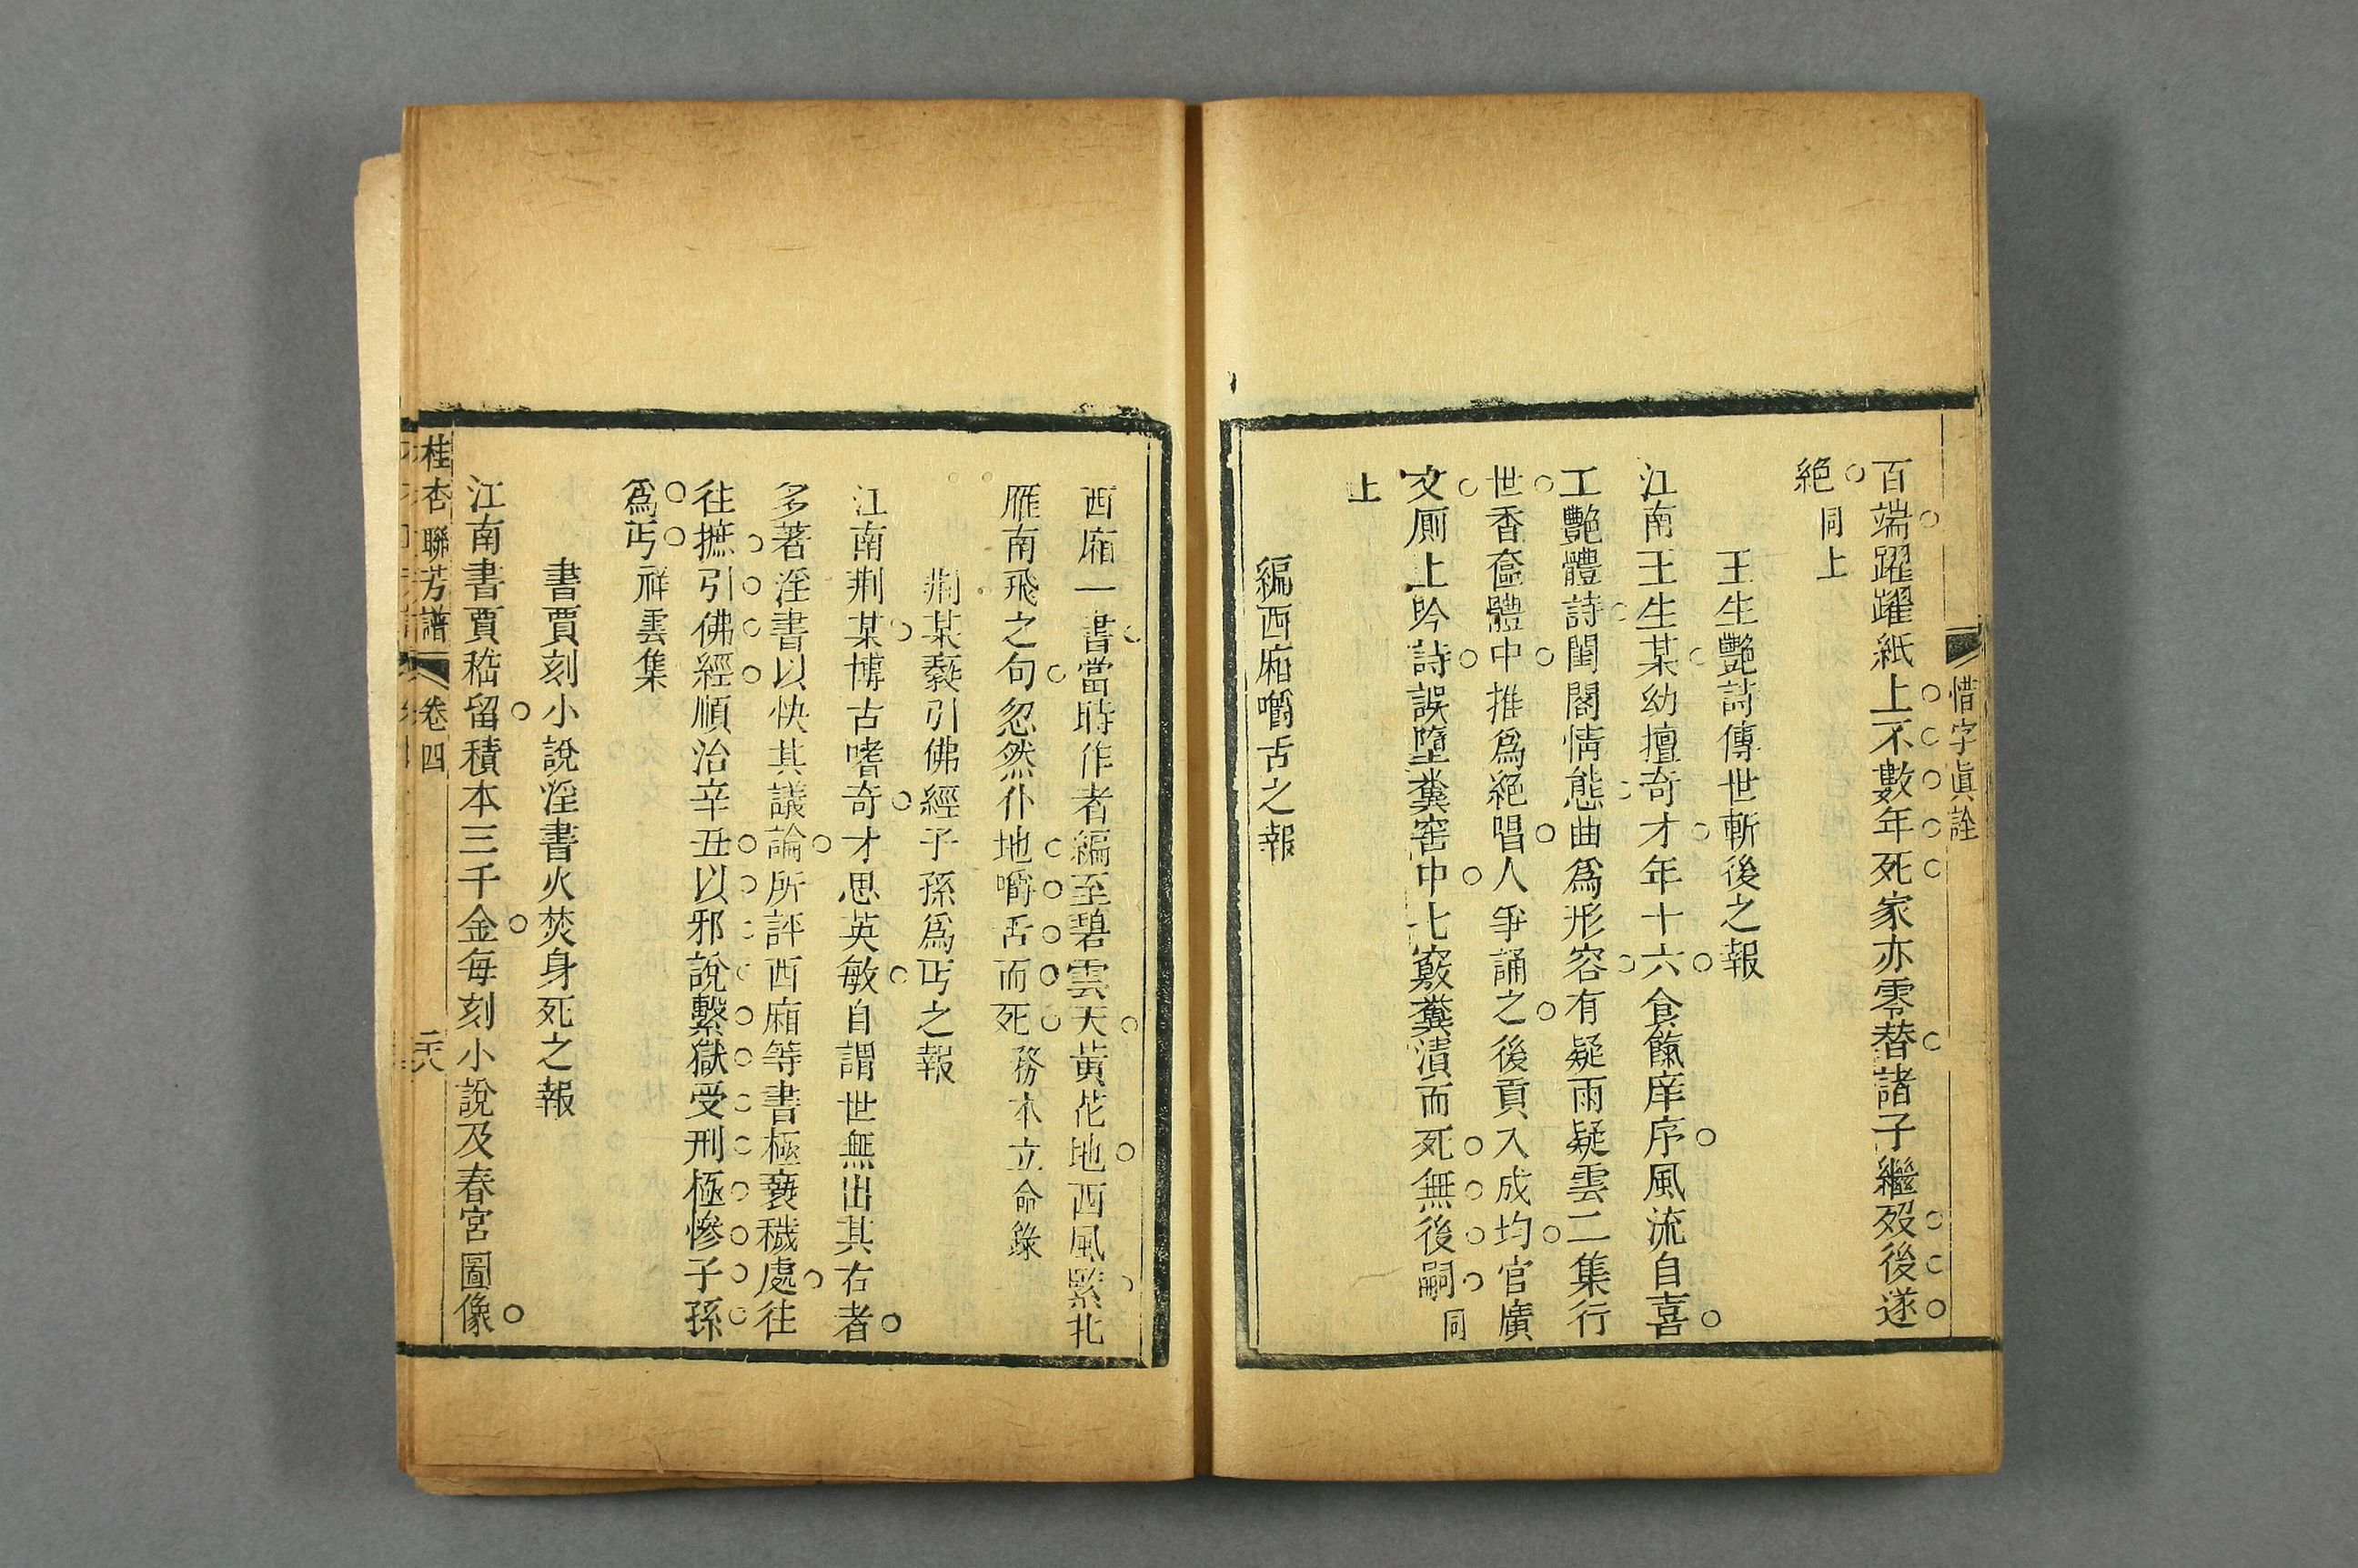 惜字眞詮
百端躍躍紙上不數年死家亦零替諸子繼歿後遂
絕同上
王生艷詩傳世斬後之報
江南王生某幼擅奇才年十六食餼庠序風流自喜
工艷體詩閨閣情態曲爲形容有疑雨疑雲二集行
世香奩體中推爲絕唱人爭誦之後貢入成均官廣
文厠上吟詩誤墮糞窖中七竅糞漬而死無後嗣同
上
編西廂嚼舌之報
西廂一書當時作者編至碧雲天黃花地西風緊北
雁南飛之句忽然仆地嚼舌而死務本立命錄
荆某褻引佛經子孫爲丐之報
江南荆某博古嗜奇才思英敏自謂世無出其右者
多著淫書以快其議論所評西廂等書極褻穢處往
往摭引佛經順治辛丑以邪說繫獄受刑極慘子孫
爲丐祥雲集
書賈刻小說淫書火焚身死之報
江南書賈嵇留積本三千金每刻小說及春宮圖像
桂杏聯芳譜 卷四 二十八